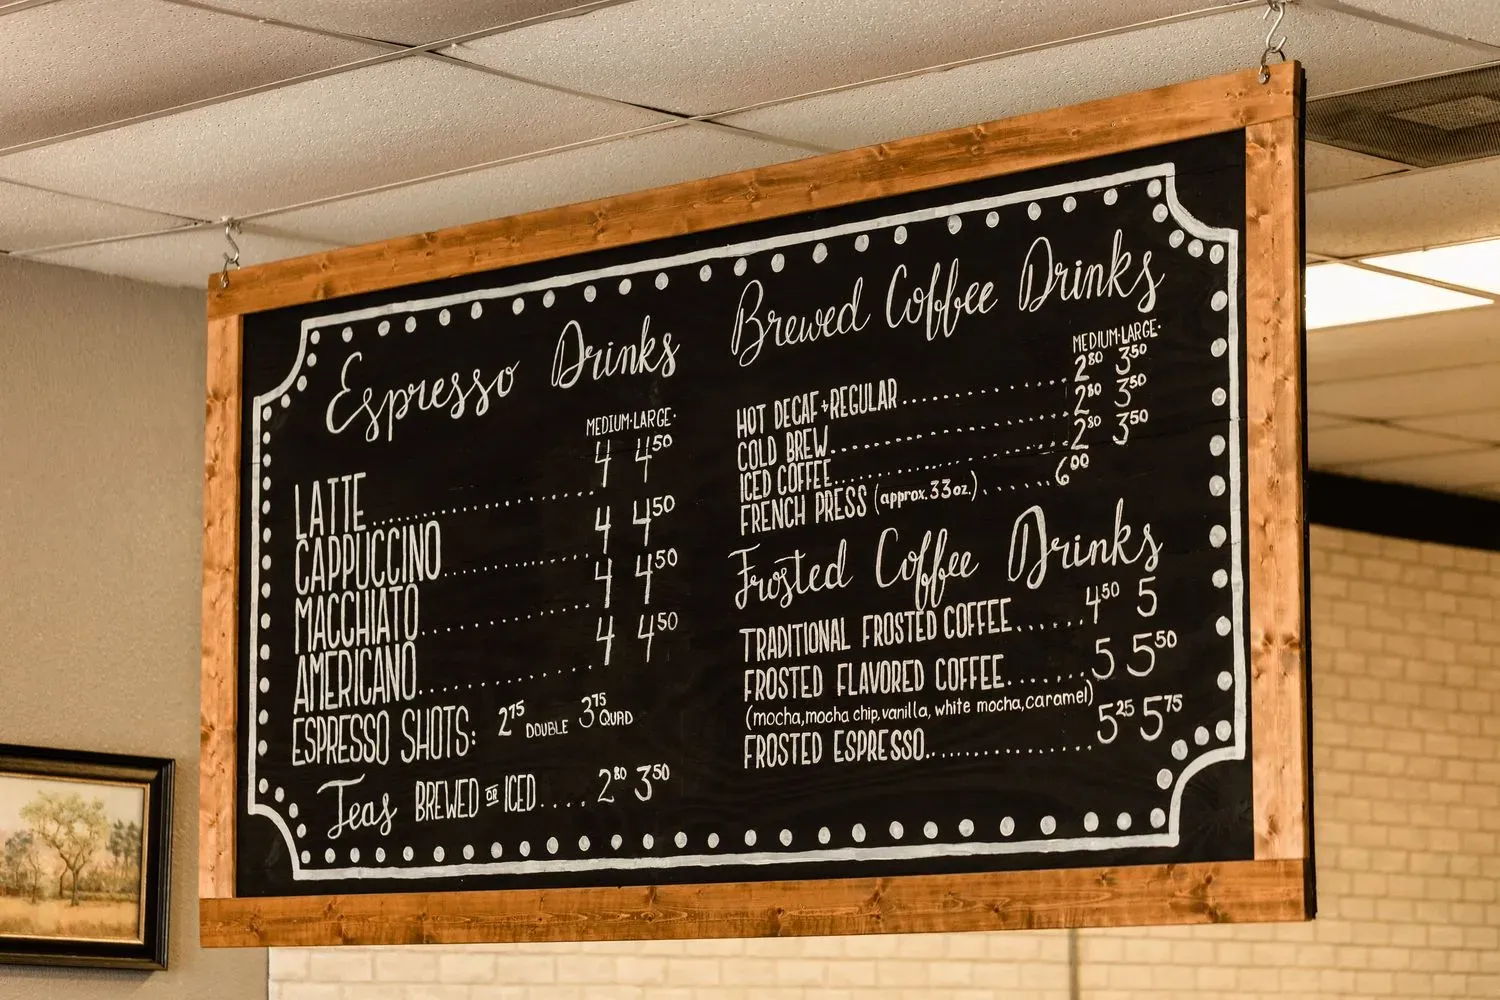 Espresso Drinks
MEDIUM·LARGE·
LATTE.................... 4 4⁵⁰
CAPPUCCINO............. 4 4⁵⁰
MACCHIATO............... 4 4⁵⁰
AMERICANO............... 4 4⁵⁰
ESPRESSO SHOTS: 2⁷⁵ DOUBLE 3⁷⁵ QUAD
Teas BREWED OR ICED.... 2⁸⁰ 3⁵⁰
Brewed Coffee Drinks
MEDIUM·LARGE·
HOT DECAF+REGULAR............. 2⁸⁰ 3⁵⁰
COLD BREW..................... 2⁸⁰ 3⁵⁰
ICED COFFEE................... 2⁸⁰ 3⁵⁰
FRENCH PRESS (approx. 33oz.)...... 6⁰⁰
Frosted Coffee Drinks
TRADITIONAL FROSTED COFFEE...... 4⁵⁰ 5
FROSTED FLAVORED COFFEE....... 5 5⁵⁰
(mocha, mocha chip, vanilla, white mocha, caramel)
FROSTED ESPRESSO............... 5²⁵ 5⁷⁵